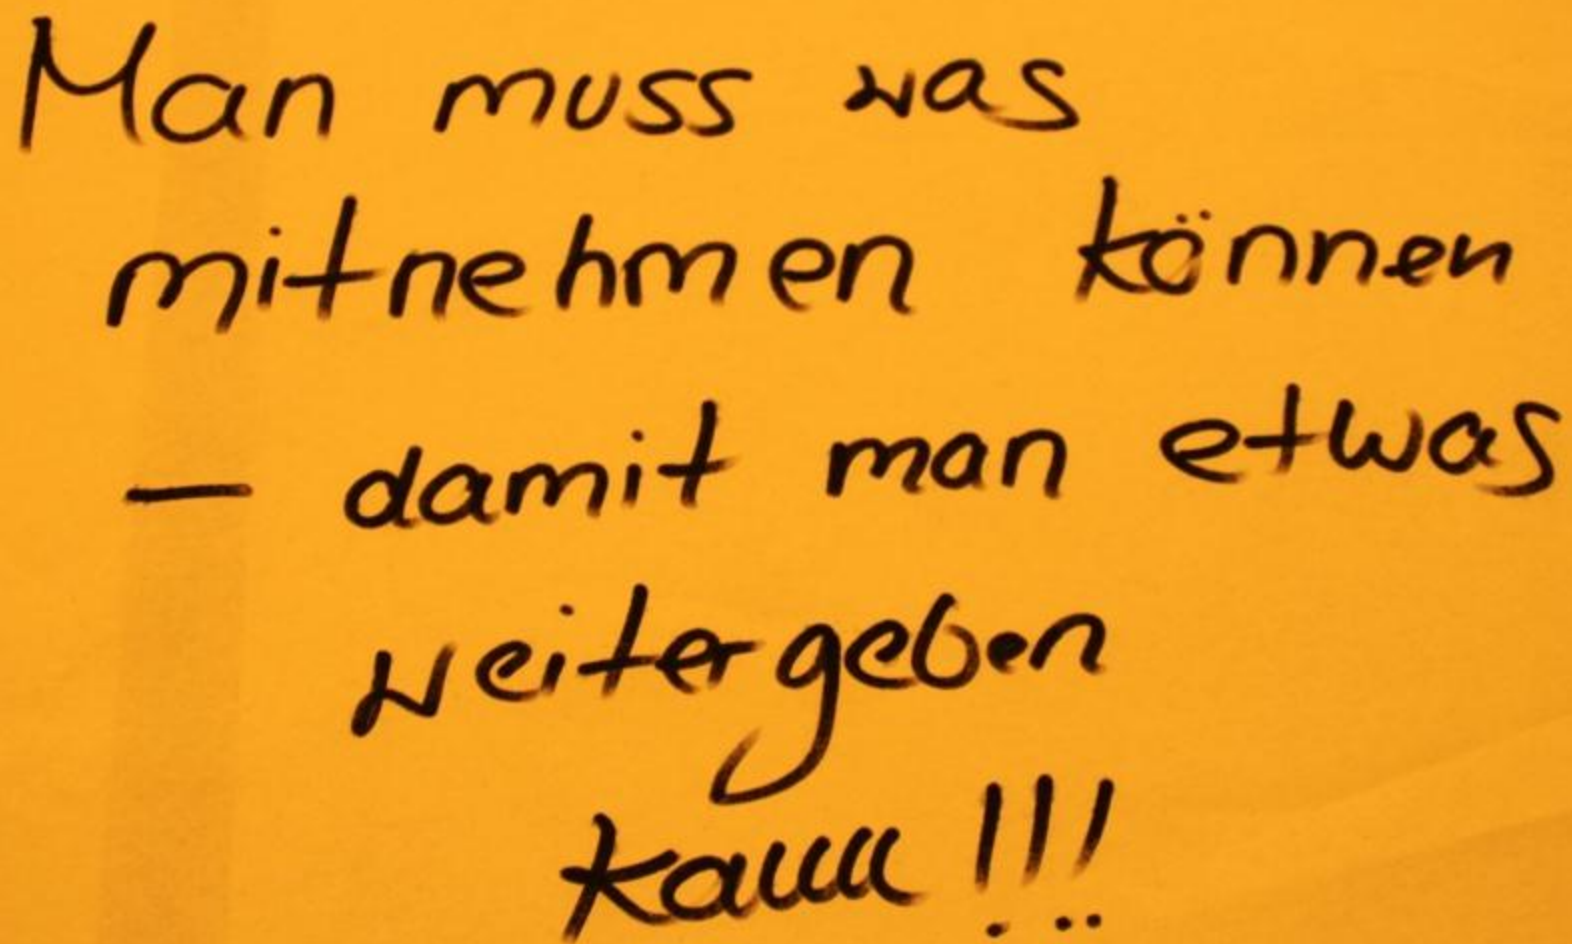 Man muss was
mitnehmen können
– damit man etwas
weitergeben
kann !!!